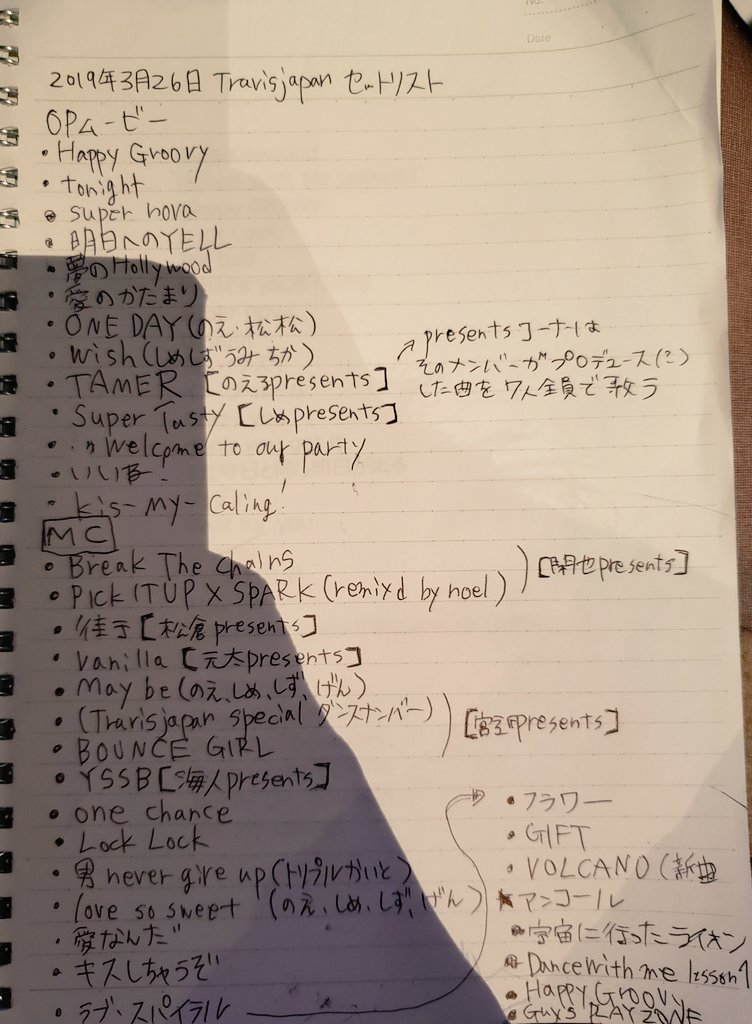 No.
Date
2019年3月26日 Travisjapan セットリスト
OPムービー
・Happy Groovy
・tonight
・super nova
・明日へのYELL
・夢のHollywood
・愛のかたまり
・ONE DAY(のえ・松松)
・wish(しめしずうみちか)
・TAMER [のえるpresents]
・Super Tasty [しめpresents]
・〃 Welcome to our party
・いい
・kis-my-Caling!
→ presentsコーナーは
そのメンバーがプロデュース(?)
した曲を7人全員で歌う
MC
・Break The chains
・Pick ITUP X SPARK (remixd by noel)
[閑也presents]
・[松倉presents]
・Vanilla [元太presents]
・May be(のえ、しめ、しず、げん)
・(Travisjapan special ダンスナンバー)
[宮近presents]
・BOUNCE GIRL
・YSSB[海人presents]
・one chance
・Lock Lock
・男 never give up(トリプルかいと)
・love so sweet (のえ、しめ、しず、げん)
・愛なんだ
・キスしちゃうぞ
・ラブ・スパイラル
・フラワー
・GIFT
・VOLCANO(新曲
★アンコール
・宇宙に行ったライオン
・Dance with me lesson1
・Happy Groovy
・Guy's PLAY ZONE